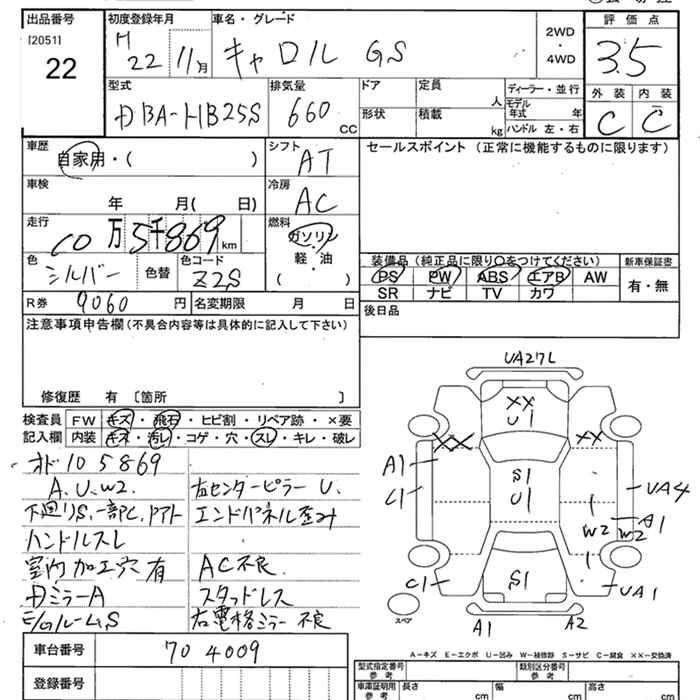 出品番号
[2051]
22
初度登録年月
H 22 11月
車名・グレード
キャロル GS
2WD
・
4WD
評価点
3.5
型式
DBA-HB25S
排気量
660 CC
ドア
形状
定員 人
積載 kg
ディーラー・並行
モデル年式 年
ハンドル 左・右
外装 内装
C C
車歴
自家用・( )
シフト
AT
セールスポイント (正常に機能するものに限ります)
車検
年 月( 日)
冷房
AC
走行
10万5千869 km
燃料
ガソリン
軽・油
( )
色
シルバー
色替
色コード
Z2S
装備品(純正品に限り○をつけてください)
新車保証書
PS PW ABS エアB AW
SR ナビ TV カワ
有・無
R券
9060 円
名変期限 月 日
後日品
注意事項申告欄(不具合内容等は具体的に記入して下さい)
修復歴 有 〔箇所 〕
検査員記入欄
FW キズ・飛石・ヒビ割・リペア跡・×要
内装 キズ・汚レ・コゲ・穴・スレ・キレ・破レ
オド105869
A.U.W2.
下廻りS.一部C.ドアト
ハンドルスレ
室内加工穴有
DミラーA
E/GルームS
右センターピラーU.
エンドパネル歪み
AC不良
スタッドレス
右電格ミラー不良
UA27L
XX
U1
XX
XX
A1
C1
S1
U1
UA4
A1
W2
W2
C1
S1
UA1
スペア
A1
A2
A-キズ E-エクボ U-凹み W-補修跡 S-サビ C-腐食 XX-交換済
車台番号
704009
登録番号
型式指定番号
参考
類別区分番号
参考
車庫証明用
参考
長さ cm
幅 cm
高さ cm